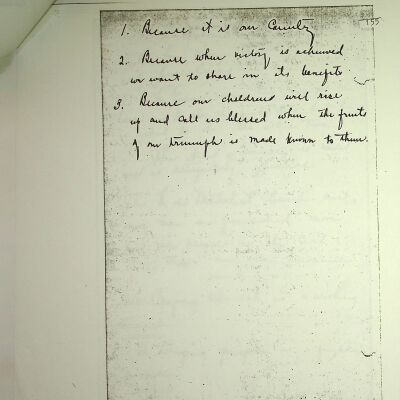 155
1. Because it is our Country
2. Because when victory is achieved
we want to share in its benefits
3. Because our childrens will rise
up and call us blessed when the fruits
of our triumph is made known to them.